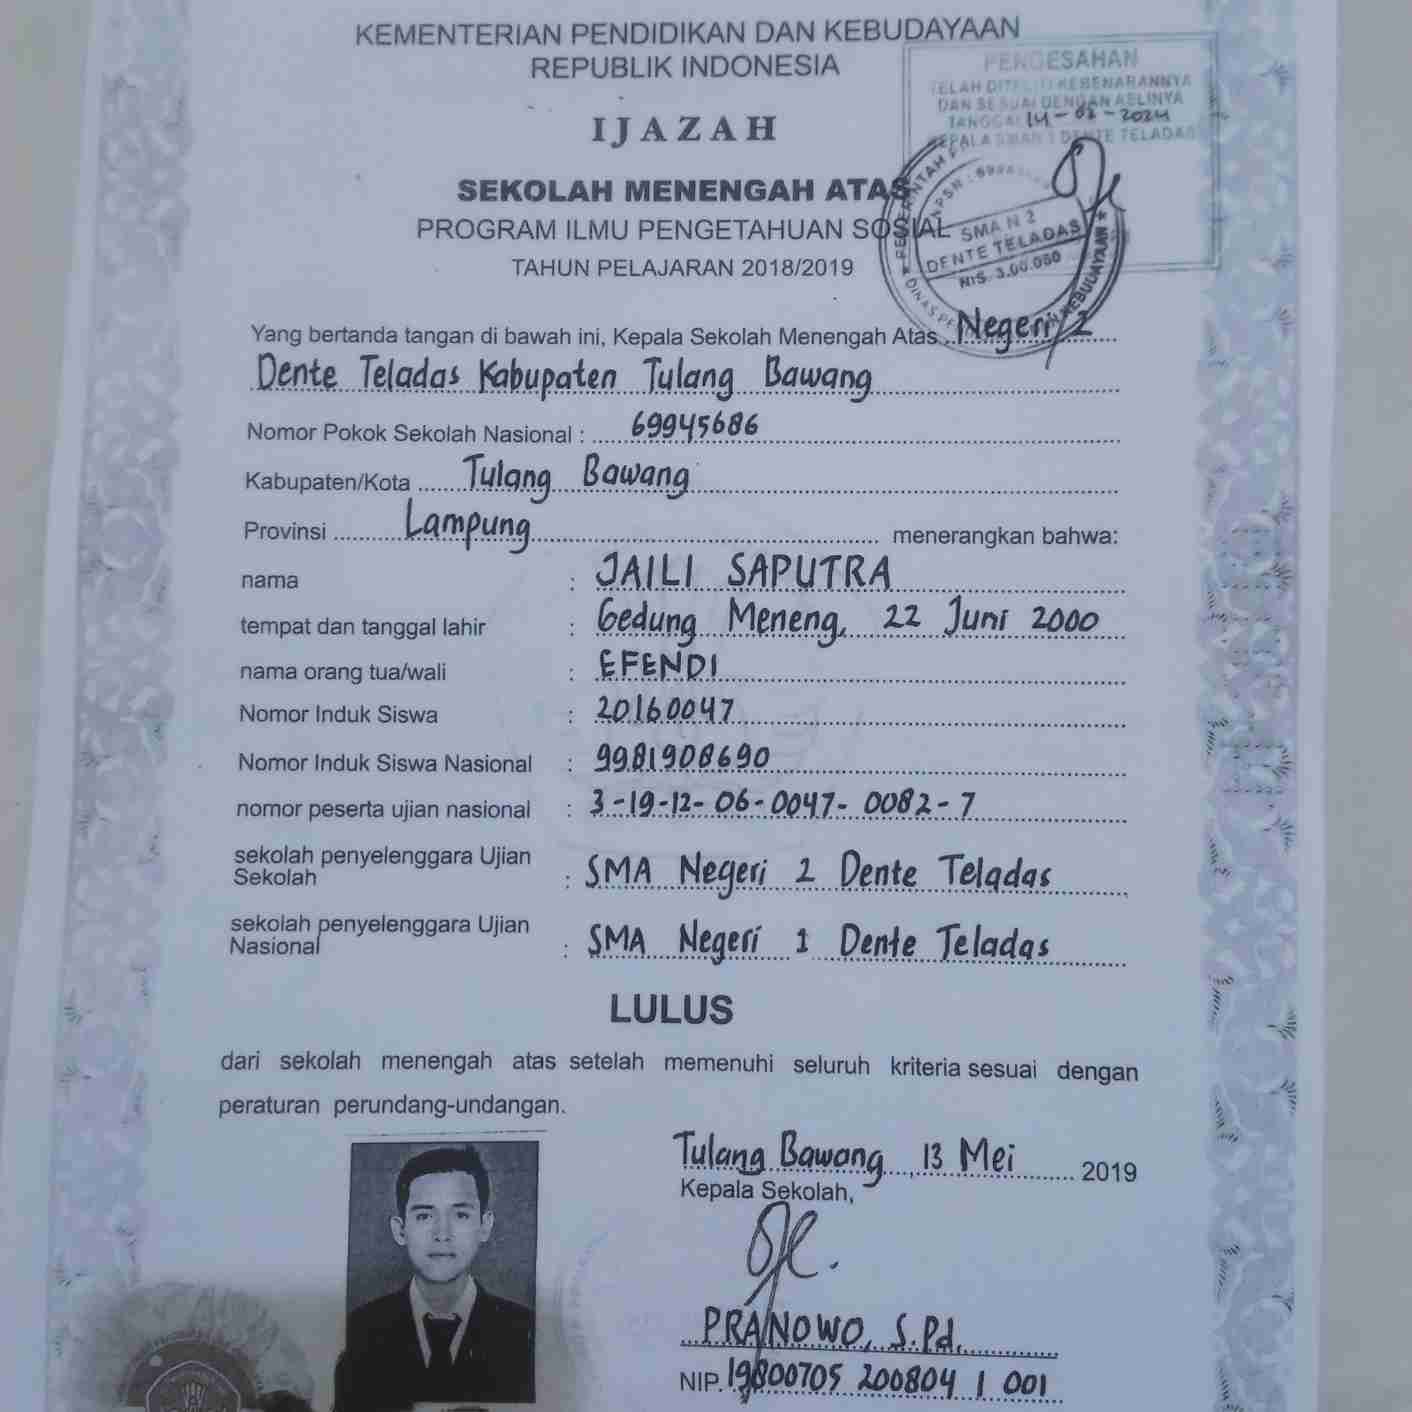 KEMENTERIAN PENDIDIKAN DAN KEBUDAYAAN
REPUBLIK INDONESIA
IJAZAH
SEKOLAH MENENGAH ATAS
PROGRAM ILMU PENGETAHUAN SOSIAL
TAHUN PELAJARAN 2018/2019
PENGESAHAN
TELAH DITELITI KEBENARANNYA
DAN SESUAI DENGAN ASLINYA
TANGGAL 14-02-2024
KEPALA SMAN 2 DENTE TELADAS
NPSN :
SMA N 2
DENTE TELADAS
NIS. 3.00.080
Yang bertanda tangan di bawah ini, Kepala Sekolah Menengah Atas Negeri 2
Dente Teladas Kabupaten Tulang Bawang
Nomor Pokok Sekolah Nasional : 69945686
Kabupaten/Kota Tulang Bawang
Provinsi Lampung menerangkan bahwa:
nama : JAILI SAPUTRA
tempat dan tanggal lahir : Gedung Meneng, 22 Juni 2000
nama orang tua/wali : EFENDI
Nomor Induk Siswa : 20160047
Nomor Induk Siswa Nasional : 9981908690
nomor peserta ujian nasional : 3-19-12-06-0047-0082-7
sekolah penyelenggara Ujian
Sekolah : SMA Negeri 2 Dente Teladas
sekolah penyelenggara Ujian
Nasional : SMA Negeri 1 Dente Teladas
LULUS
dari sekolah menengah atas setelah memenuhi seluruh kriteria sesuai dengan
peraturan perundang-undangan.
Tulang Bawang, 13 Mei 2019
Kepala Sekolah,
PRANOWO, S.Pd.
NIP. 19800705 200804 1 001